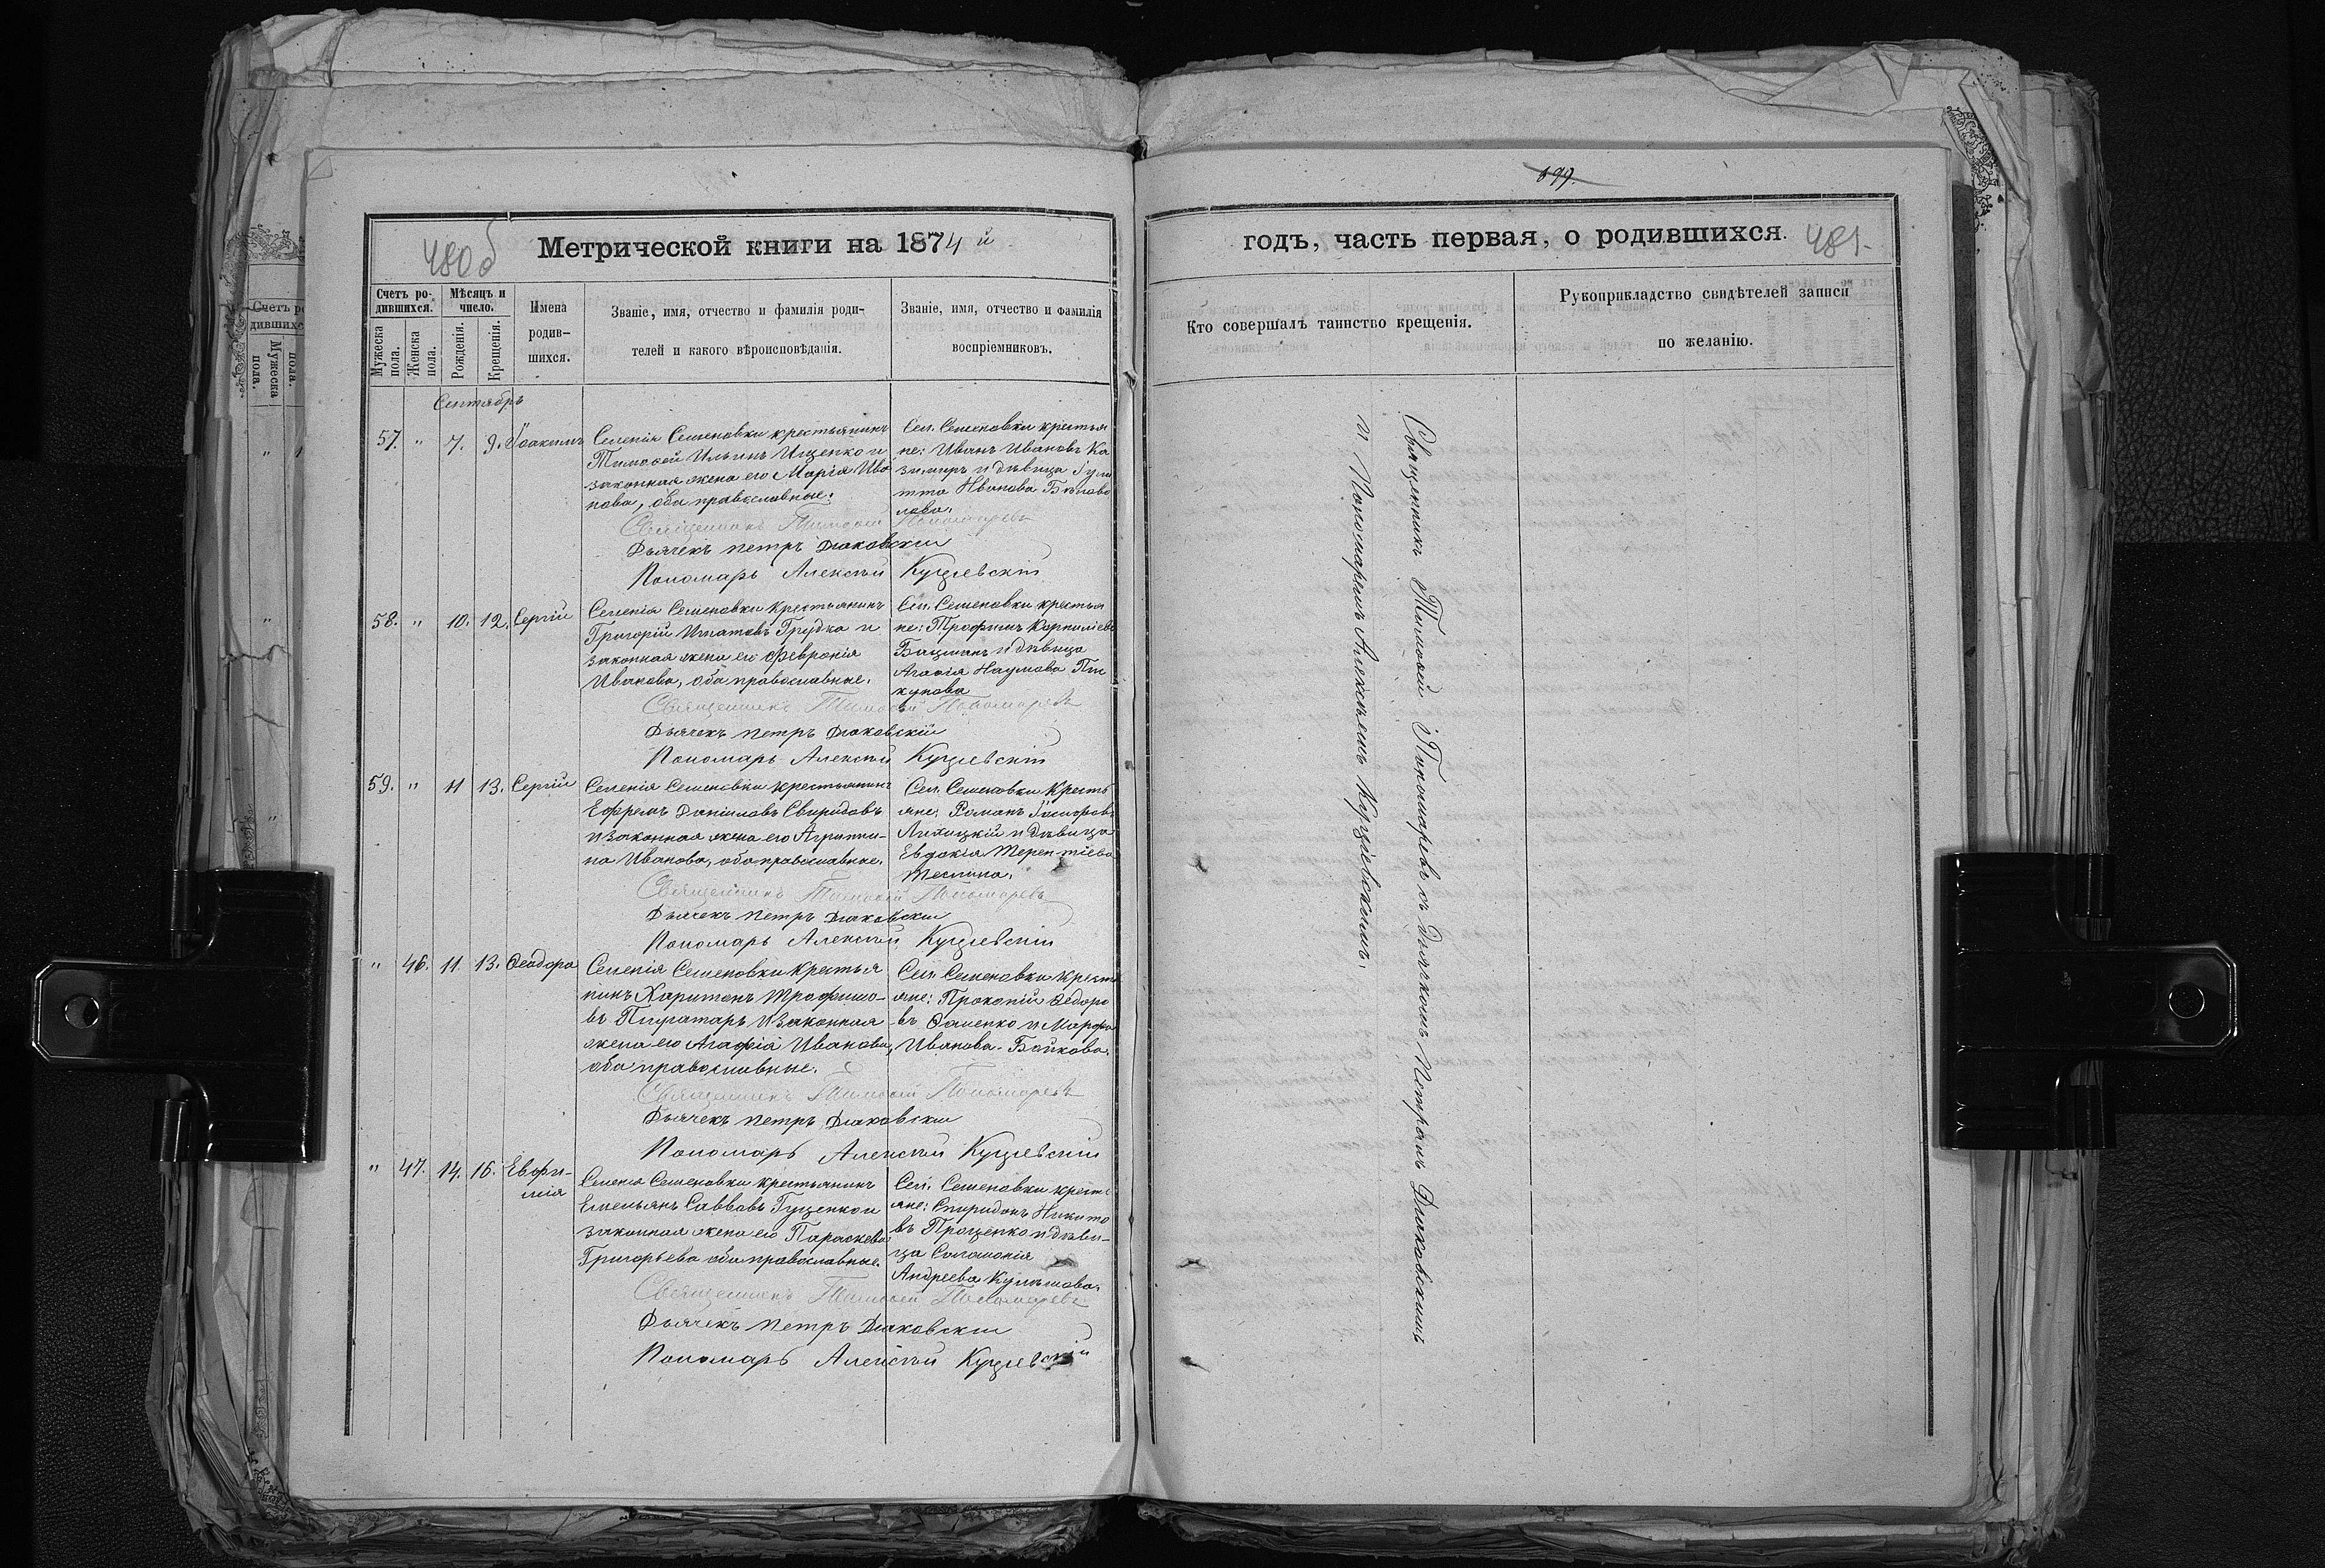 699.
480 об
Метрической книги на 1874 й
годъ, часть первая, о родившихся.
481.
Счетъ ро-
дившихся.
Мужеска пола.
Женска пола.
Мѣсяцъ и
число.
Рожденія.
Крещенія.
Имена
родив-
шихся.
Званіе, имя, отчество и фамилія роди-
телей и какого вѣроисповѣданія.
Званіе, имя, отчество и фамилія
воспріемниковъ.
Кто совершалъ таинство крещенія.
Рукоприкладство свидѣтелей записи
по желанію.
Сентябрь
57. " 7. 9. Іоакимъ
Селенія Семеновки крестьянинъ
Тимоѳей Ильинъ Ищенко и
законная жена его Марія Ива
нова, оба православные.
Сел. Семеновки крестья
не: Иванъ Ивановъ Ка
зимиръ и дѣвица Іули
тта Иванова
Священникъ Тимоѳей Пономаревъ
Дьячекъ Петръ Діаковскій
Пономарь Алексѣй Куцѣевскій
58. " 10. 12. Сергій
Селенія Семеновки крестьянинъ
Григорій Игнатовъ Грудка и
законная жена его Февронія
Иванова, оба православные.
Сел. Семеновки крестья
не: Трофимъ Корниліевъ
Бацманъ и дѣвица
Агаѳія Наумова Пи
кунова
Священникъ Тимоѳей Пономаревъ
Дьячекъ Петръ Діаковскій
Пономарь Алексѣй Куцѣевскій
59. " 11 13. Сергій
Селенія Семеновки крестьянинъ
Ефремъ Даніиловъ Свиридовъ
и законная жена его Агрипи-
на Иванова, оба православные.
Сел. Семеновки кресть
яне: Романъ
Лихицкій и дѣвица
Евдокія Терентіева
Теслина.
Священникъ Тимоѳей Пономаревъ
Дьячекъ Петръ Діаковскій
Пономарь Алексѣй Куцѣевскій
" 46. 11. 13. Ѳеодора
Селенія Семеновки крестья
нинъ Харитонъ Трофимо-
въ и законная
жена его Агафія Иванова,
оба православные.
Сел. Семеновки крестья
яне: Прокопій Ѳедоро
въ и Марфа
Иванова Байкова.
Священникъ Тимоѳей Пономаревъ
Дьячекъ Петръ Діаковскій
Пономарь Алексѣй Куцѣевскій
" 47. 14. 16. Евфи-
мія
Селенія Семеновки крестьянинъ
Емельянъ Саввовъ Гуценко и
законная жена его Параскева
Григорьева оба православные.
Сел. Семеновки кресть
яне: Спиридонъ Никито
въ Проценко и дѣви-
ца Саломонія
Андреева Кулѣшова.
Священникъ Тимоѳей Пономаревъ
Дьячекъ Петръ Діаковскій
Пономарь Алексѣй Куцѣевскій
Священникъ Тимоѳей Пономаревъ съ Дьячкомъ Петромъ Діаковскимъ
и Пономаремъ Алексѣемъ Куцѣевскимъ.